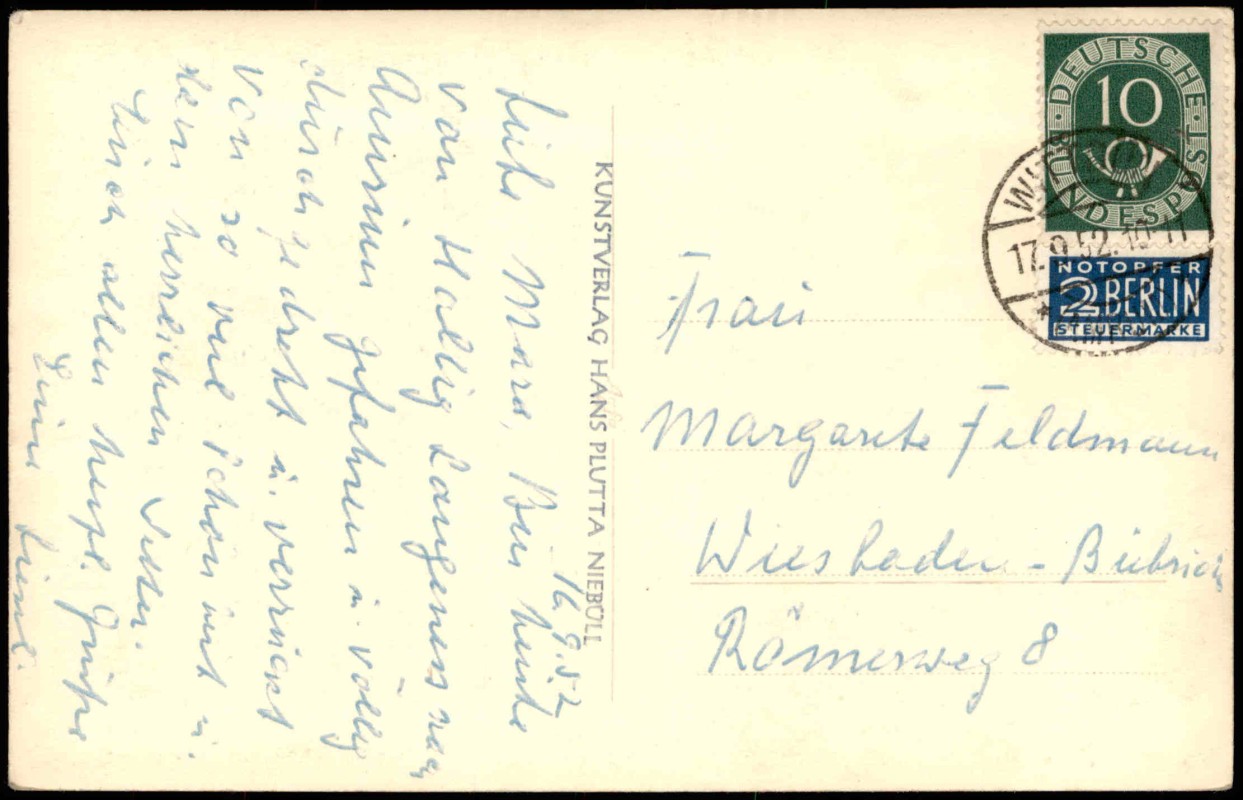 16.9.52
Liebe Mara, Bin heute
von Hallig Langeness nach
Amrum gefahren u. völlig
durchgedreht u. verrückt
von so viel Schönheit u.
dem herrlichen Wetter.
Euch allen herzl. Grüße
Eure
KUNSTVERLAG HANS PLUTTA NIEBÜLL
DEUTSCHE BUNDESPOST
10
17.9.52.10-11
NOTOPFER
2 BERLIN
STEUERMARKE
Frau
Margarete Feldmann
Wiesbaden-Biebrich
Römerweg 8